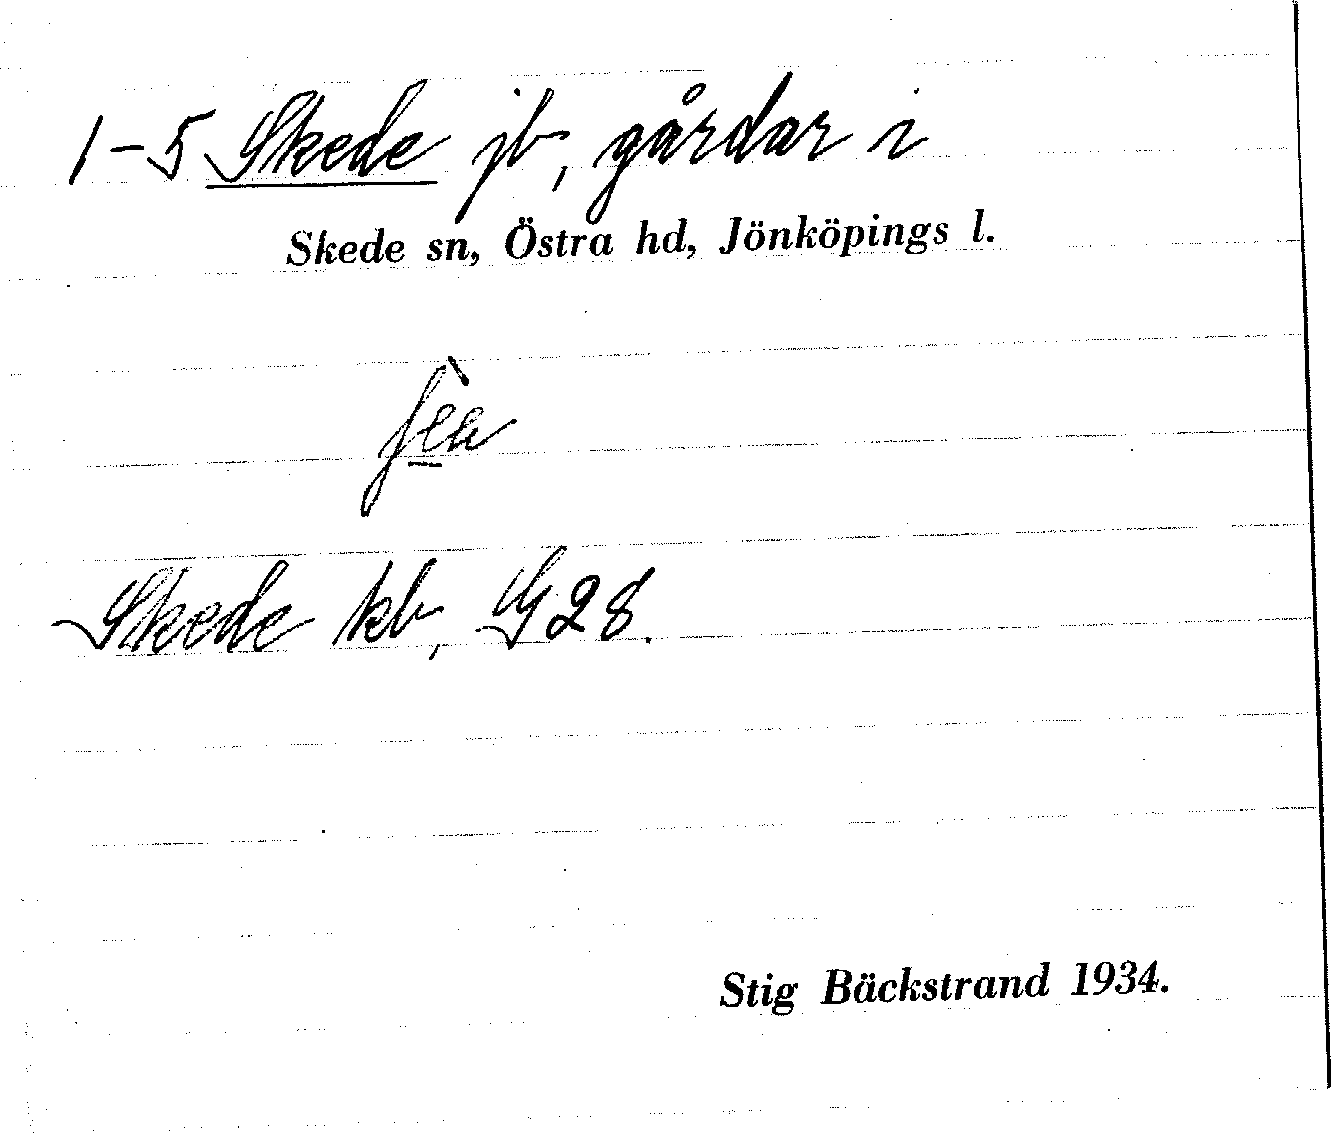 1-5 Skede jb, gårdar i
Skede sn, Östra hd, Jönköpings l.
Skede kb, G 28.
Stig Bäckstrand 1934.